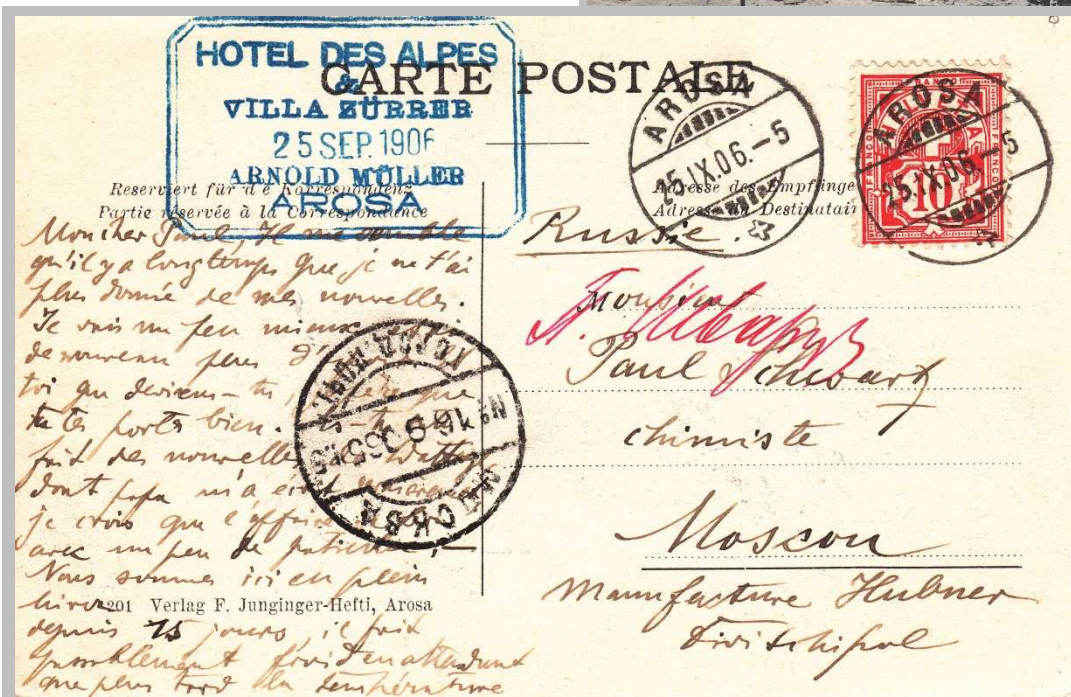 HOTEL DES ALPES
&
VILLA ZÜRRER
25 SEP. 1906
ARNOLD MÜLLER
AROSA
CARTE POSTALE
AROSA
25.IX.06.-5
AROSA
25.IX.06.-5
10
Reserviert für die Korrespondenz
Partie réservée à la Correspondance
Adresse des Empfänge
Adresse du Destinatair
Mon cher Paul, Il me semble
qu'il y a longtemps que je ne t'ai
plus donné de mes nouvelles.
Je vais un peu mieux
de nouveau plus d'
toi que deviens-tu, que
tu te portes bien.
fait des nouvelles
dont papa m'a
je crois que l'affaire
avec un peu de patience
Nous sommes ici en plein
hiver
depuis 15 jours, il fait
passablement froid en attendant
que plus tard la température
201 Verlag F. Junginger-Hefti, Arosa
МОСКВА
16 9 06
Russie.
Monsieur
Paul Schwarz
chimiste
Moscou
Manufacture Hubner